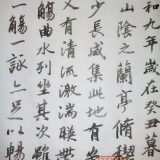 和九年歲在癸丑
山陰之蘭亭脩稧
少長咸集此地有
又有清流激湍暎
觴曲水列坐其次
一觴一詠亦足以暢